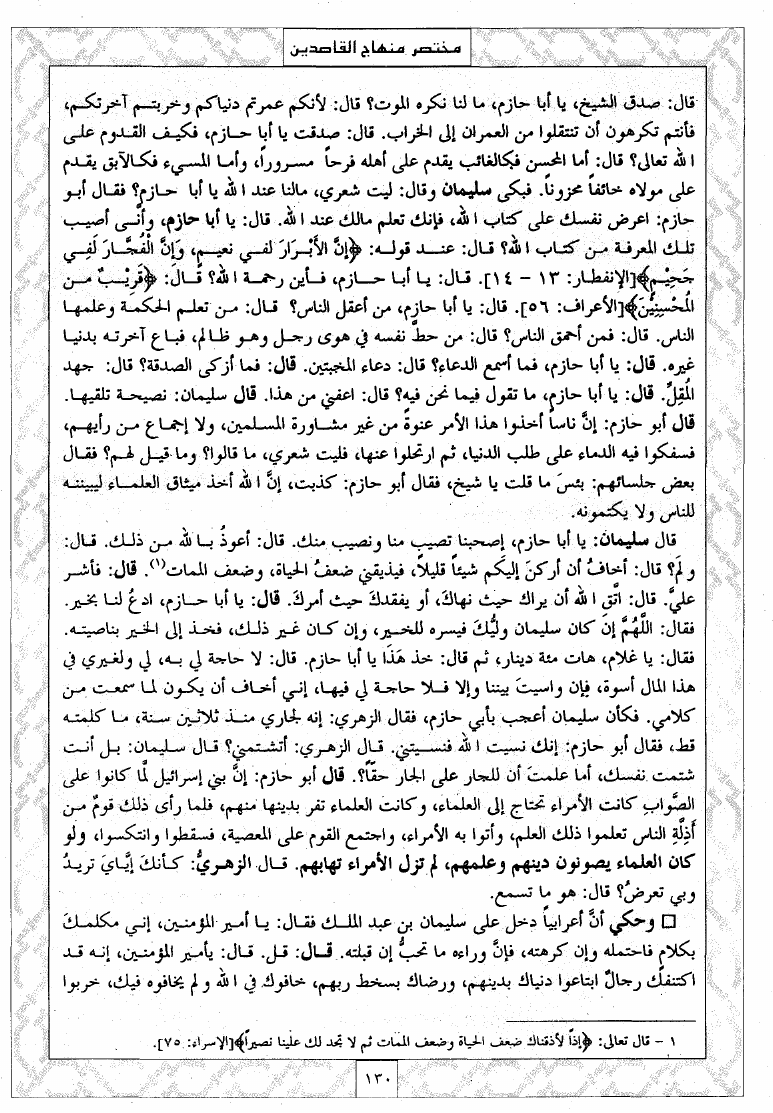 مختصر منهاج القاصدين
قال: صدق الشيخ، يا أبا حازم، ما لنا نكره الموت؟ قال: لأنكم عمرتم دنياكم وخربتم آخرتكم،
فأنتم تكرهون أن تنتقلوا من العمران إلى الخراب. قال: صدقت يا أبا حازم، فكيف القدوم على
الله تعالى؟ قال: أما المحسن فكالغائب يقدم على أهله فرحاً مسروراً، وأما المسيء فكالآبق يقدم
على مولاه خائفاً محزوناً. فبكى سليمان وقال: ليت شعري، مالنا عند الله يا أبا حازم؟ فقال أبو
حازم: اعرض نفسك على كتاب الله، فإنك تعلم مالك عند الله. قال: يا أبا حازم، وأنّى أصيب
تلك المعرفة من كتاب الله؟ قال: عند قوله: ﴿إنَّ الأَبْرَارَ لفي نعيم، وَإِنَّ الْفُجَّارَ لَفِي
جَحِيْمٍ﴾[الإنفطار: ١٣ – ١٤]. قال: يا أبا حازم، فأين رحمة الله؟ قال: ﴿قَرِيْبٌ من
المُحْسِنِيْنَ﴾[الأعراف: ٥٦]. قال: يا أبا حازم، من أعقل الناس؟ قال: من تعلم الحكمة وعلمها
الناس. قال: فمن أحمق الناس؟ قال: من حطَّ نفسه في هوى رجل وهو ظالم، فباع آخرته بدنيا
غيره. قال: يا أبا حازم، فما أسمع الدعاء؟ قال: دعاء المخبتين. قال: فما أزكى الصدقة؟ قال: جهد
المُقِلِّ. قال: يا أبا حازم، ما تقول فيما نحن فيه؟ قال: اعفني من هذا. قال سليمان: نصيحة تلقيها.
قال أبو حازم: إنَّ ناساً أخذوا هذا الأمر عنوةً من غير مشاورة المسلمين، ولا إجماع من رأيهم،
فسفكوا فيه الدماء على طلب الدنيا، ثم ارتحلوا عنها، فليت شعري، ما قالوا؟ وما قيل لهم؟ فقال
بعض جلسائهم: بئسَ ما قلت يا شيخ، فقال أبو حازم: كذبت، إنَّ الله أخذ ميثاق العلماء ليبيننه
للناس ولا يكتمونه.
قال سليمان: يا أبا حازم، إصحبنا تصيب منا ونصيب منك. قال: أعوذُ بالله من ذلك. قال:
ولِمَ؟ قال: أخافُ أن أركنَ إليكم شيئاً قليلاً، فيذيقني ضعفَ الحياة، وضعف الممات(١). قال: فأشر
عليَّ. قال: اتَّقِ الله أن يراك حيث نهاكَ، أو يفقدكَ حيث أمركَ. قال: يا أبا حازم، ادعُ لنا بخير.
فقال: اللَّهُمَّ إن كان سليمان وليُّكَ فيسره للخير، وإن كان غير ذلك، فخذ إلى الخير بناصيته.
فقال: يا غلام، هات مئة دينار، ثم قال: خذ هَذَا يا أبا حازم. قال: لا حاجة لي به، لي ولغيري في
هذا المال أسوة، فإن واسيتَ بيننا وإلا فلا حاجة لي فيها، إني أخاف أن يكون لما سمعت من
كلامي. فكأن سليمان أعجب بأبي حازم، فقال الزهري: إنه لجاري منذ ثلاثين سنة، ما كلمته
قط، فقال أبو حازم: إنك نسيت الله فنسيتني. قال الزهري: أتشتمني؟ قال سليمان: بل أنت
شتمت نفسك، أما علمتَ أن للجار على الجار حقّاً؟. قال أبو حازم: إنَّ بني إسرائيل لمَّا كانوا على
الصَّواب كانت الأمراء تحتاج إلى العلماء، وكانت العلماء تفر بدينها منهم، فلما رأى ذلك قومٌ من
أَذِلَّةِ الناس تعلموا ذلك العلم، وأتوا به الأمراء، واجتمع القوم على المعصية، فسقطوا وانتكسوا، ولو
كان العلماء يصونون دينهم وعلمهم، لم تزل الأمراء تهابهم. قال الزهريُّ: كأنكَ إيَّايَ تريدُ
وبي تعرضُ؟ قال: هو ما تسمع.
□ وحكي أنَّ أعرابياً دخل على سليمان بن عبد الملك فقال: يا أمير المؤمنين، إني مكلمكَ
بكلام فاحتمله وإن كرهته، فإنَّ وراءه ما تحبُّ إن قبلته. قال: قل. قال: يأمير المؤمنين، إنه قد
اكتنفكَ رجالٌ ابتاعوا دنياك بدينهم، ورضاك بسخط ربهم، خافوكَ في الله ولم يخافوه فيك، خربوا
١ – قال تعالى: ﴿إذاً لأذقناك ضعف الحياة وضعف الممات ثم لا تجد لك علينا نصيراً﴾[الإسراء: ٧٥].
١٣٠